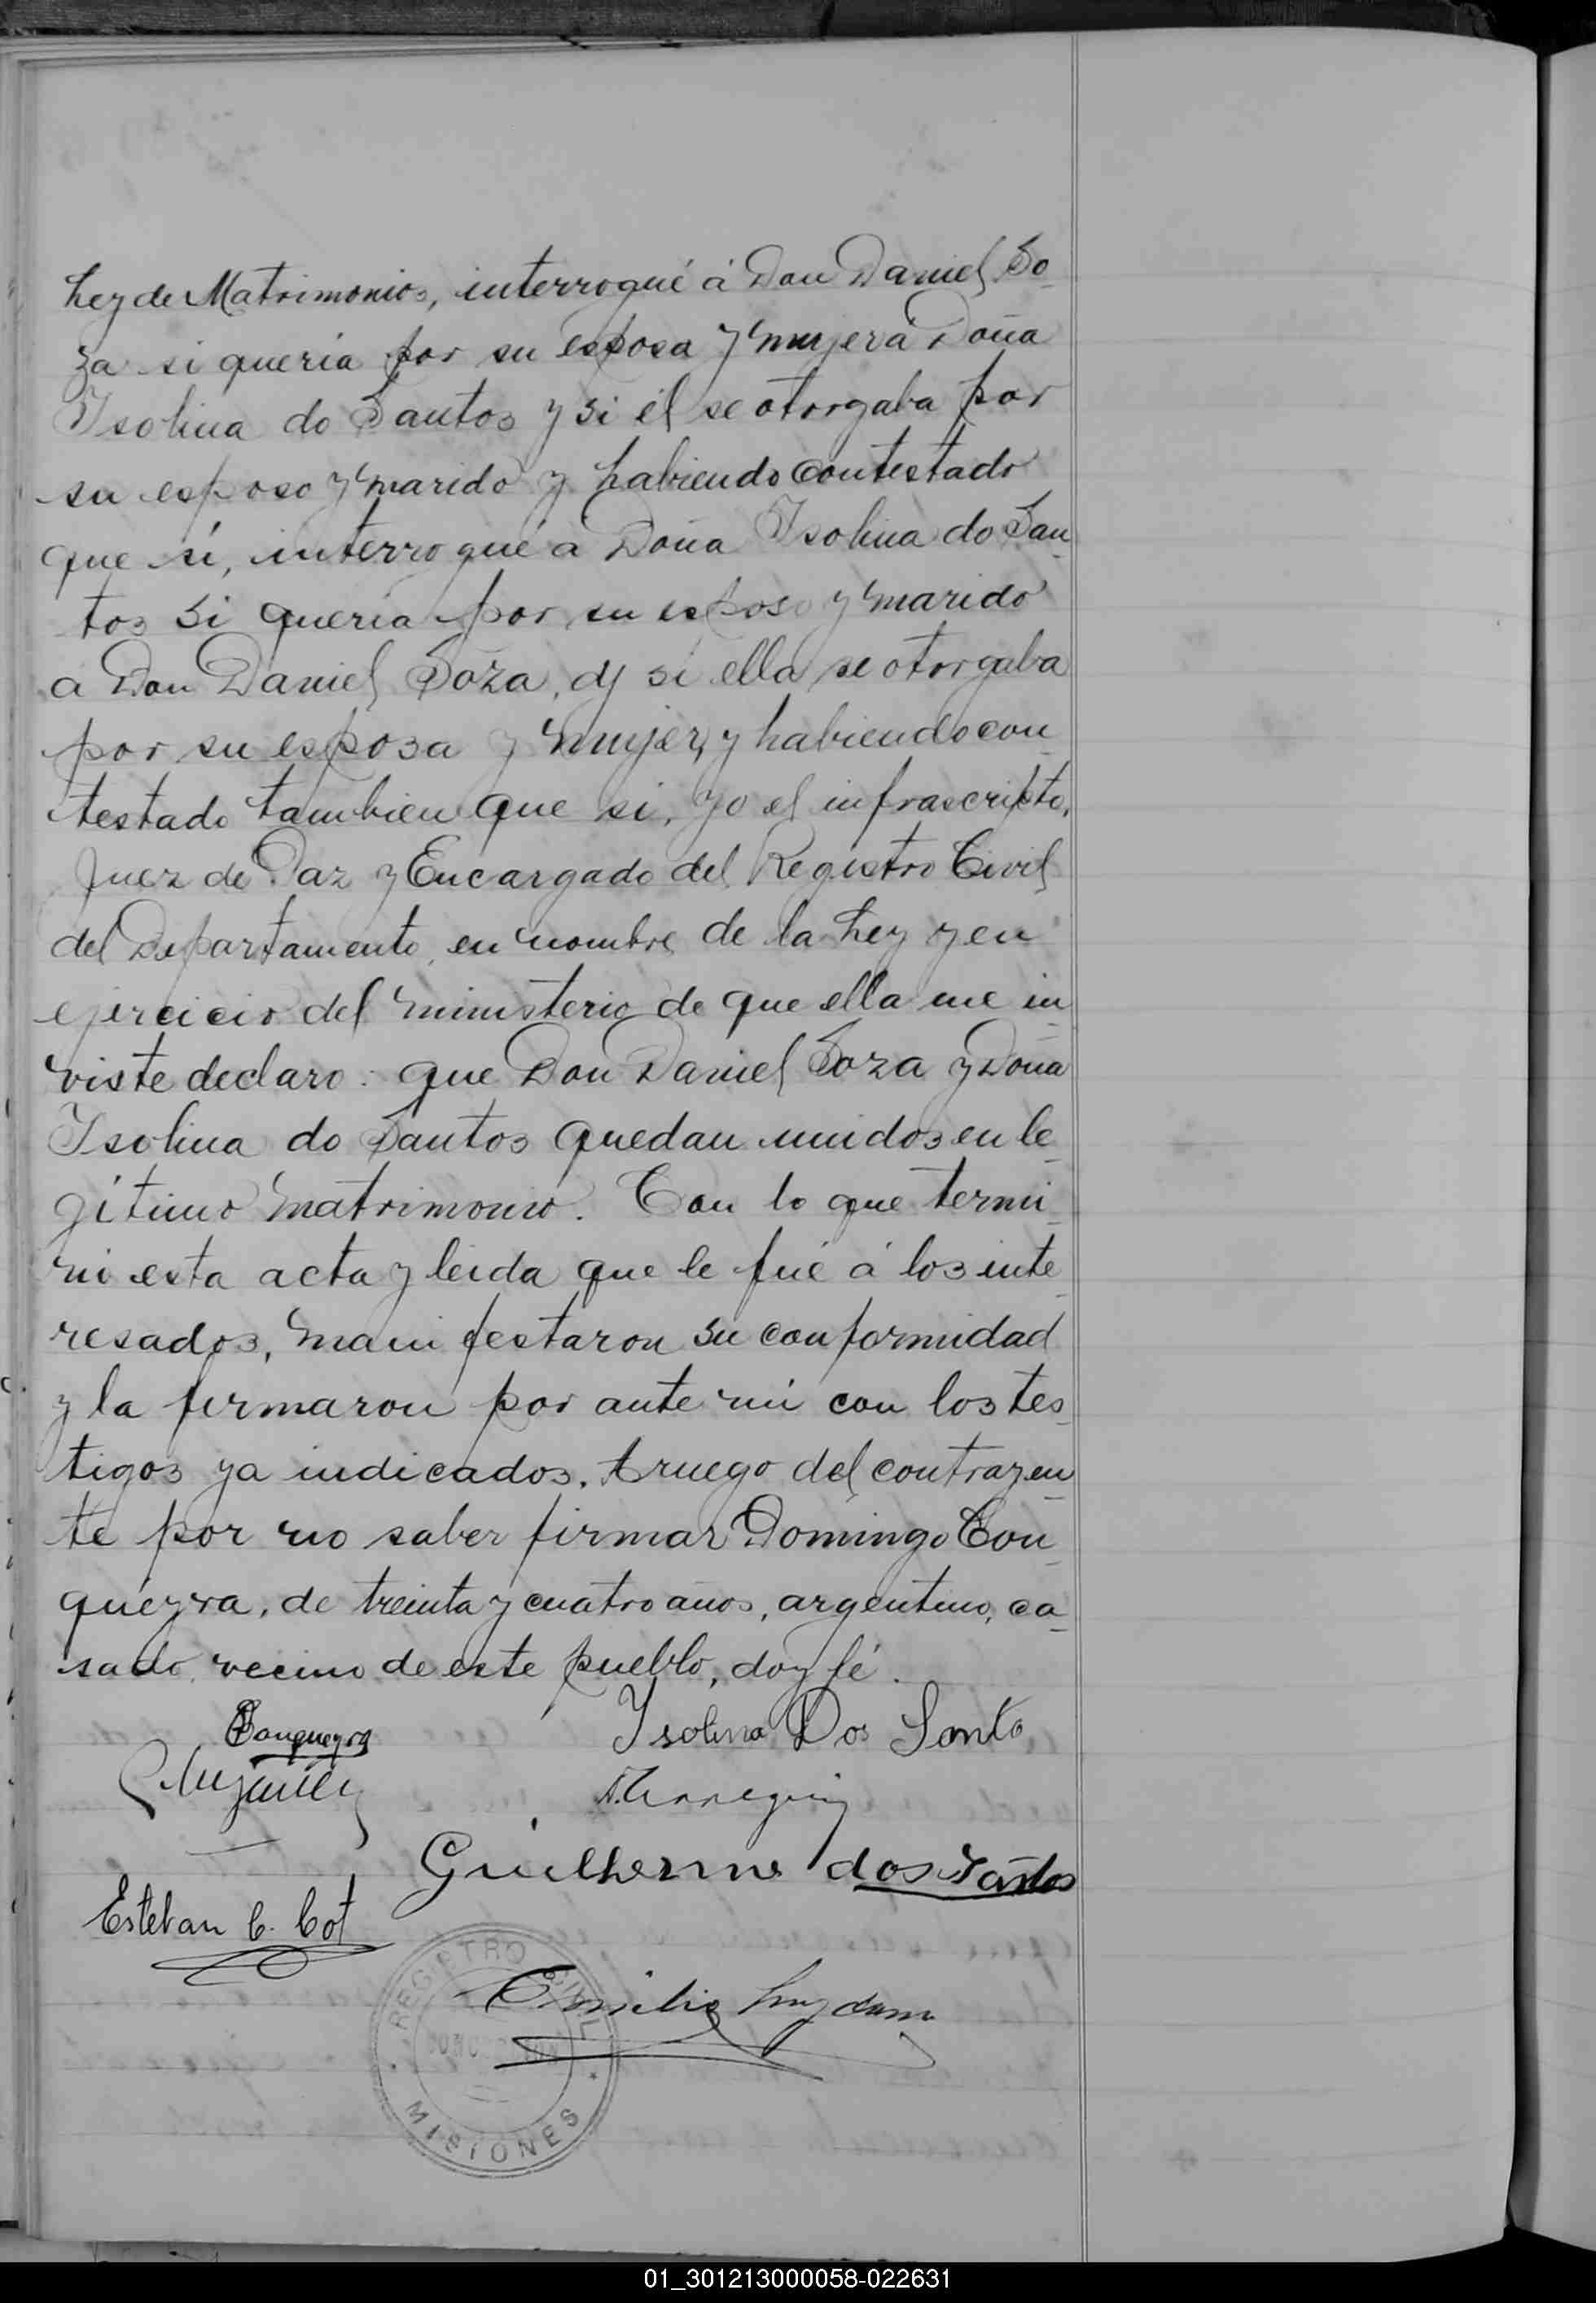 Ley de Matrimonios, interrogué á Don Daniel So-
za si quería por su esposa y mujer á Doña
Isolina do Santos y si él se otorgaba por
su esposo y marido y habiendo contestado
que sí, interrogué a Doña Isolina do San-
tos si quería por su esposo y marido
a Don Daniel Soza, y si ella se otorgaba
por su esposa y mujer, y habiendo con-
testado tambien que si, yo el infrascripto,
Juez de Paz y Encargado del Registro Civil
del Departamento, en nombre de la Ley y en
ejercicio del ministerio de que ella me in-
viste declaro: que Don Daniel Soza y Doña
Isolina do Santos quedan unidos en le-
gítimo matrimonio. Con lo que termi-
nó esta acta y leida que le fué á los inte-
resados, manifestaron su conformidad
y la firmaron por ante mi con los tes-
tigos ya indicados. A ruego del contrayen-
te por no saber firmar Domingo Con-
queyra, de treinta y cuatro años, argentino, ca-
sado, vecino de este pueblo, doy fé.
Isolina Dos Santo
Guilherme dos Santos
Esteban C. Cot
Emilio
REGISTRO CIVIL
MISIONES
01_301213000058-022631